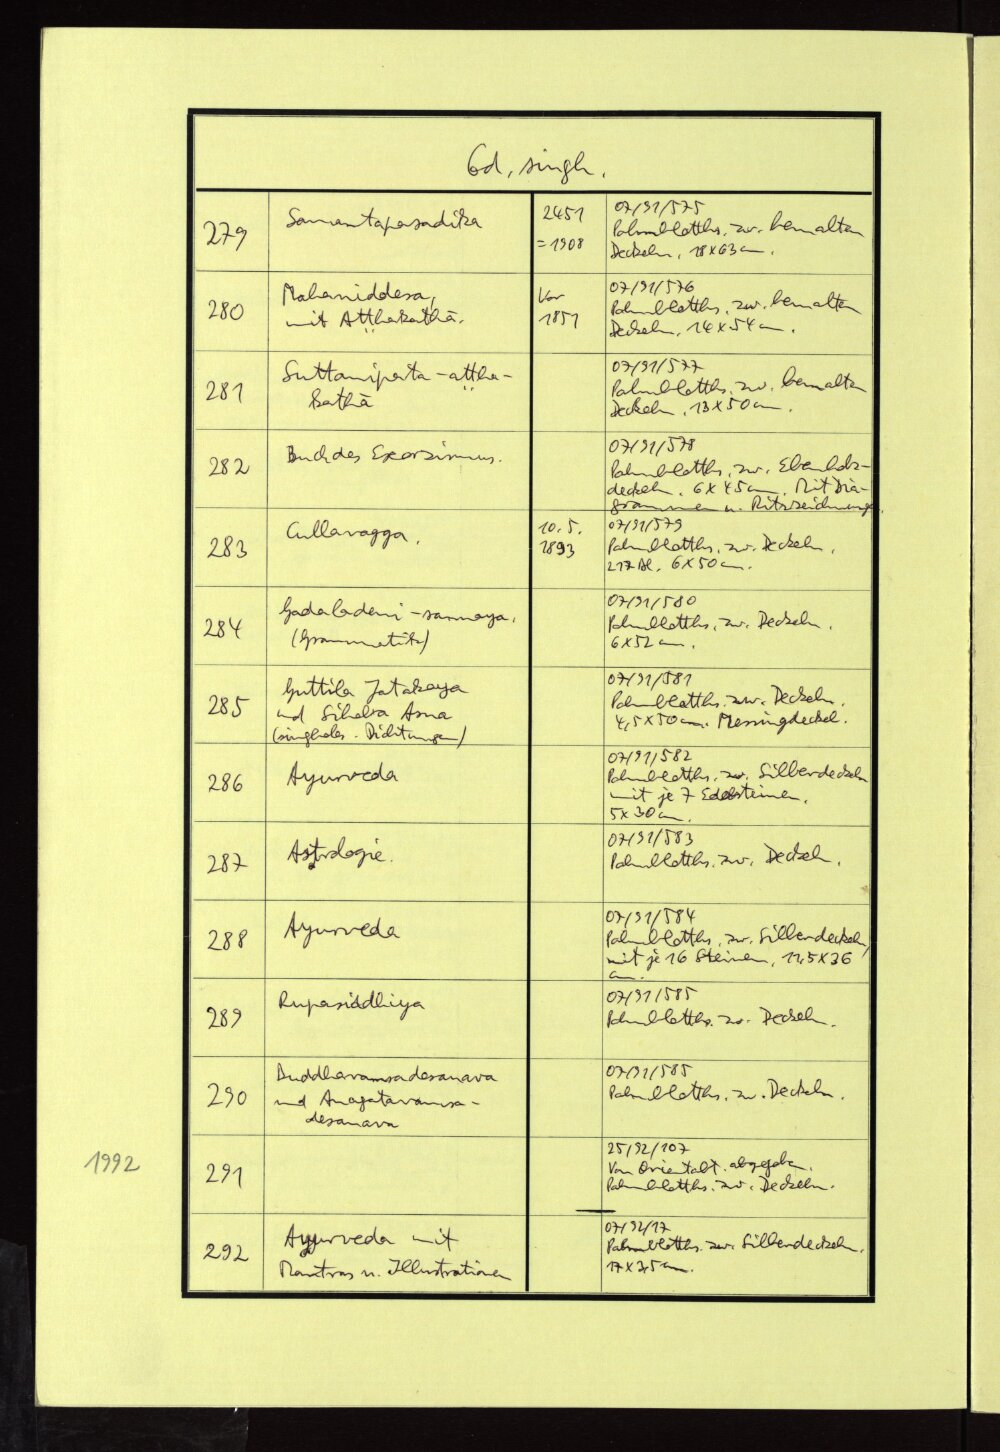 Cod. singh.
279
Samantapasadika
2451
= 1908
07/91/575
Palmblatths. zw. bemalten
Deckeln, 18x63 cm.
280
Mahaniddesa,
mit Aṭṭhakathā.
Vor
1851
07/91/576
Palmblatths. zw. bemalten
Deckeln, 14x54 cm.
281
Suttanipata-aṭṭha-
kathā
07/91/577
Palmblatths. zw. bemalten
Deckeln, 13x50 cm.
282
Buch des Exorzismus.
07/91/578
Palmblatths. zw. Ebenholz-
deckeln. 6x45 cm. Mit Dia-
grammen u. Ritzzeichnungen.
283
Cullavagga.
10.5.
1893
07/91/579
Palmblatths. zw. Deckeln.
217 Bl. 6x50 cm.
284
Gadaladeni-sannaya.
(Grammatik)
07/91/580
Palmblatths. zw. Deckeln.
6x52 cm.
285
Guttila Jatakaya
und Sihaba Asna
(singhales. Dichtungen)
07/91/581
Palmblatths. zw. Deckeln.
4,5x50 cm. Messingdeckel.
286
Ayurveda
07/91/582
Palmblatths. zw. Silberdeckeln
mit je 7 Edelsteinen.
5x30 cm.
287
Astrologie.
07/91/583
Palmblatths. zw. Deckeln.
288
Ayurveda
07/91/584
Palmblatths. zw. Silberdeckeln,
mit je 16 Steinen, 11,5x36
cm.
289
Rupasiddhiya
07/91/585
Palmblatths. zw. Deckeln.
290
Buddhavamsadesanava
und Anagatavamsa-
desanava
07/91/585
Palmblatths. zw. Deckeln.
1992
291
25/92/107
Von Orientabt. abgegeben.
Palmblatths. zw. Deckeln.
292
Ayurveda mit
Mantras u. Illustrationen
07/92/17
Palmblatths. zw. Silberdeckeln.
17x3,5 cm.